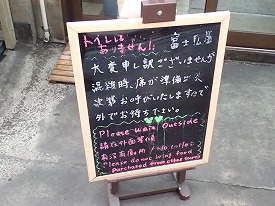 トイレは
ありません!!
富士見屋
大変申し訳ございませんが
混雑時、席が準備でき
次第お呼びいたしますので
外でお待ち下さい。
Please wait Outside
請在外面等候
No toilet
Please do not bring food
Purchased from other stores